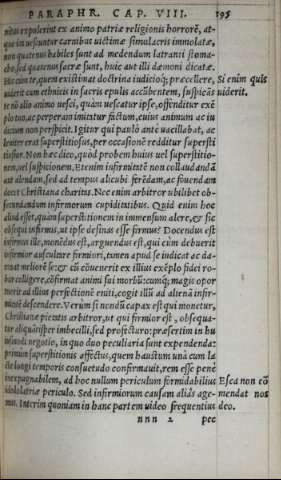 PARAPHR. CAP. VIII. 195
nitus expulerint ex animo patriæ religionis horrorē, at-
que in uescuntur carnibus uictimæ simulacris immolatæ,
non quatenus habiles sunt ad medendum latranti stoma-
cho, sed quatenus sacræ sunt, huic aut illi dæmoni dicatæ.
Hic cùm te, quem existimat doctrina iudicioq́; præcellere,
uiderit cum ethnicis in sacris epulis accūbentem, suspicās
te nō alio animo uesci, quàm uescatur ipse, offenditur exē
plo tuo, ac perperam imitatur factum, cuius animum ac iu
dicium non perspicit. Igitur qui paulò antè uacillabat, ac
leuiter erat superstitiosus, per occasionē redditur supersti
tiosior. Non hæc dico, quòd probem huius uel superstitio-
nem, uel suspicionem. Etenim infirmitatē non collaudandā
aut alendam, sed ad tempus alicubi ferēdam, ac fouendam
docet Christiana charitas. Nec enim arbitror ubilibet ob-
secundandum infirmorum cupiditatibus. Quid enim hoc
aliud esset, quàm superstitionem in immensum alere, & sic
obsequi infirmis, ut ipse desinas esse firmus? Docendus est
infirmus ille, monēdus est, arguendus est, qui cùm debuerit
infirmior auscultare firmiori, tamen apud se iudicat ac da-
mnat meliorē se: & cū cōuenerit ex illius exēplo fidei ro-
bur colligere, cōfirmat animi sui morbū: cumq́; magis opor
tuerit ad illius perfectionē eniti, cogit illū ad alienā infir-
mitatē descendere. Verùm si nondū capax est qui monetur,
Christianæ pietatis arbitror, ut qui firmior est, obsequa-
tur aliquantisper imbecilli, sed profecturo: præsertim in hu
iusmodi negotio, in quo duo peculiaria sunt expendenda:
primùm superstitionis affectus, quem haustum unà cum la
cte longi temporis consuetudo confirmauit, rem esse penè
inexpugnabilem, ad hoc nullum periculum formidabilius
idololatriæ periculo. Sed infirmorum causam aliâs age-
mus. Interim quoniam in hanc partem uideo frequentius
nnn 2 pec
Si enim quis
uiderit.
Esca non cō
mendat nos
deo.